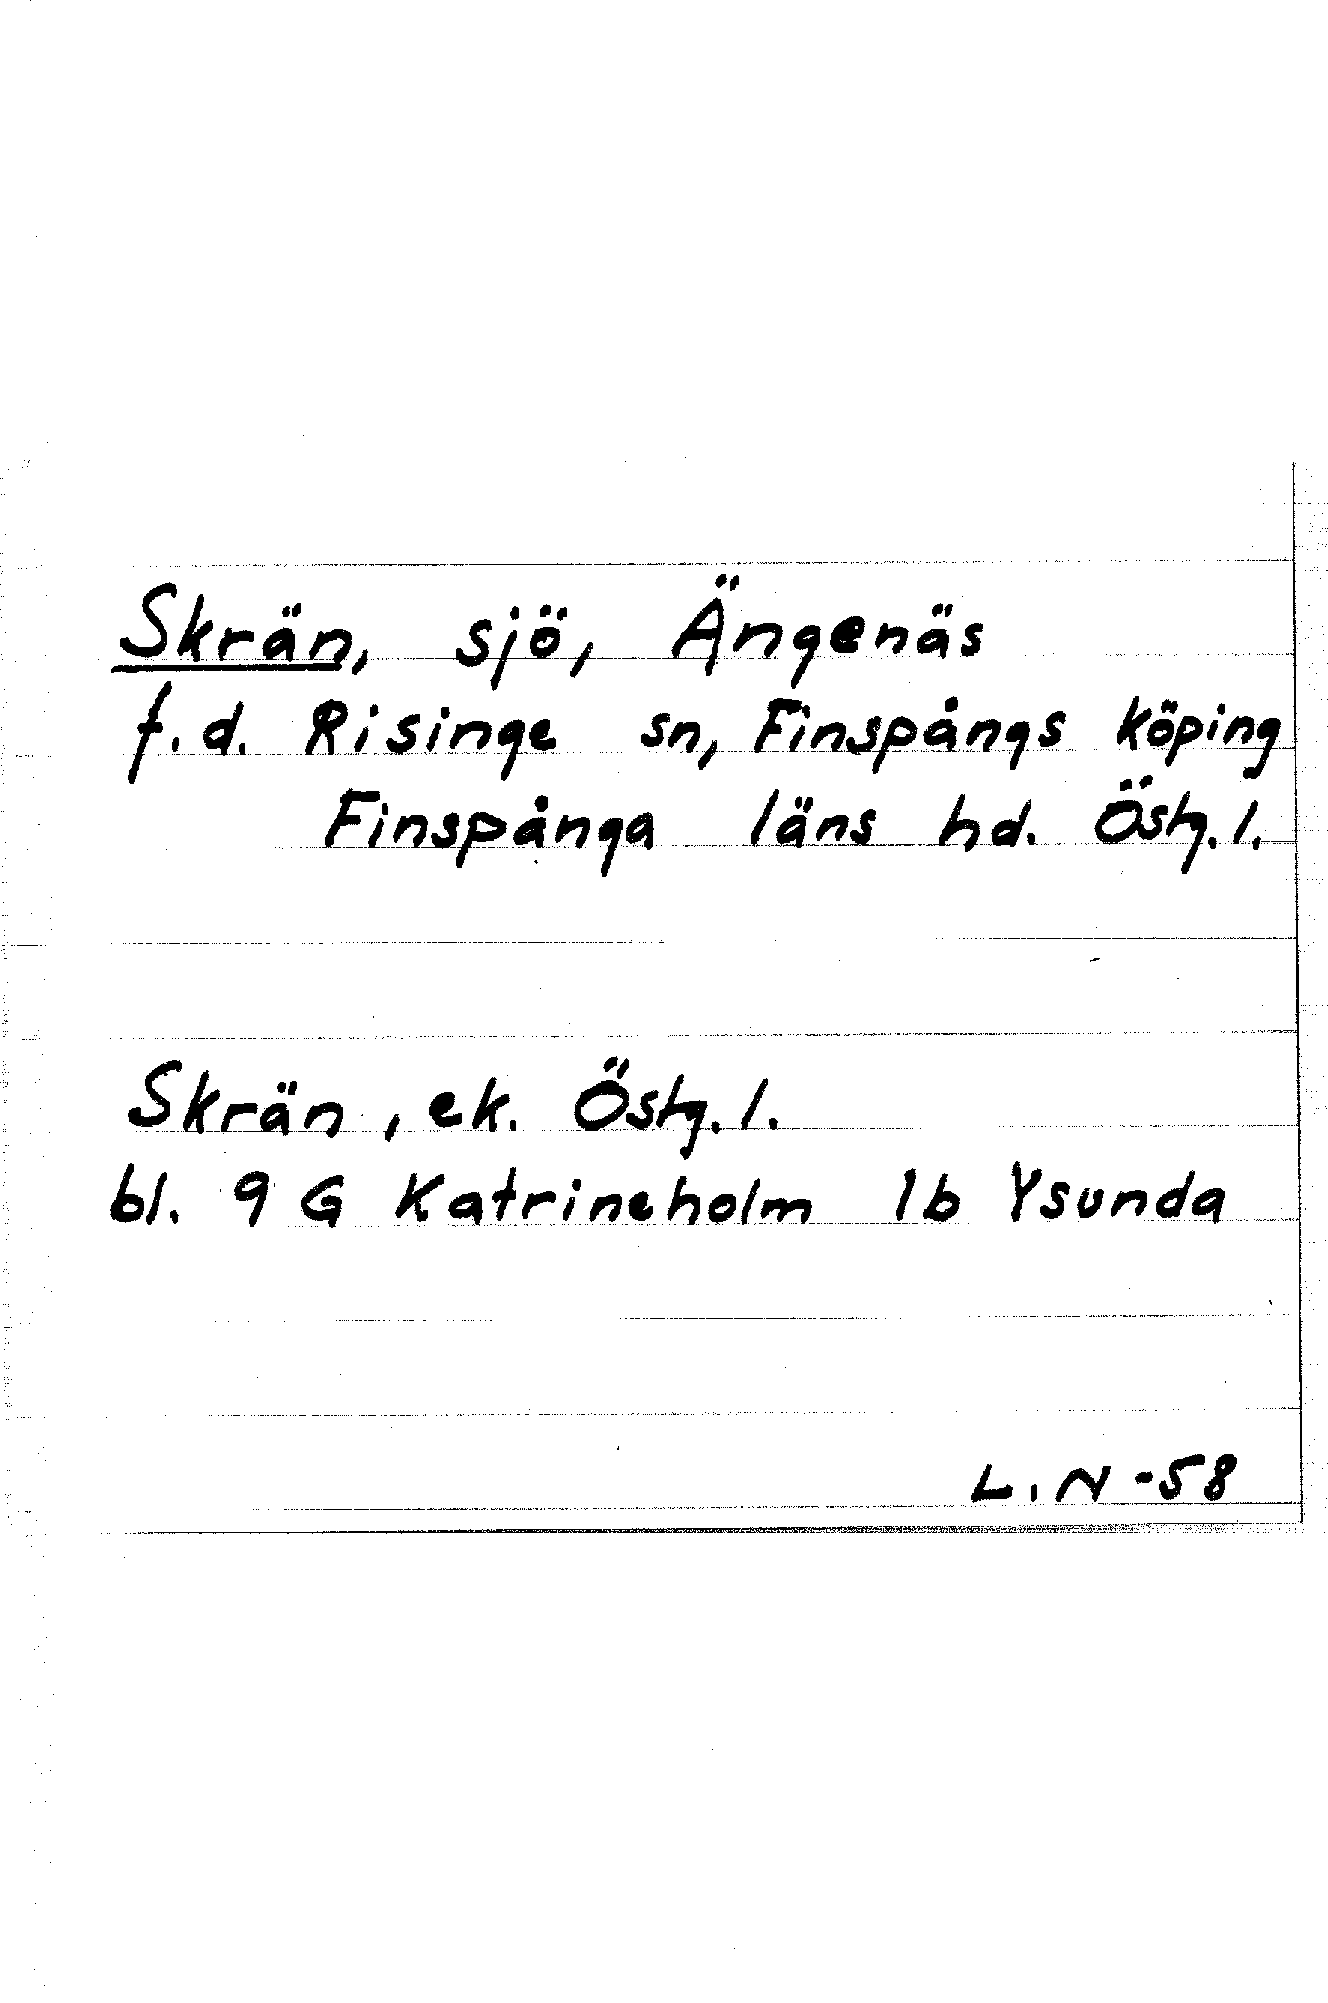 Skrän, sjö, Ängenäs
f.d. Risinge sn, Finspångs köping
Finspånga läns hd. Östg.l.
Skrän, ek. Östg.l.
bl. 9 G Katrineholm 1b Ysunda
L.N -58